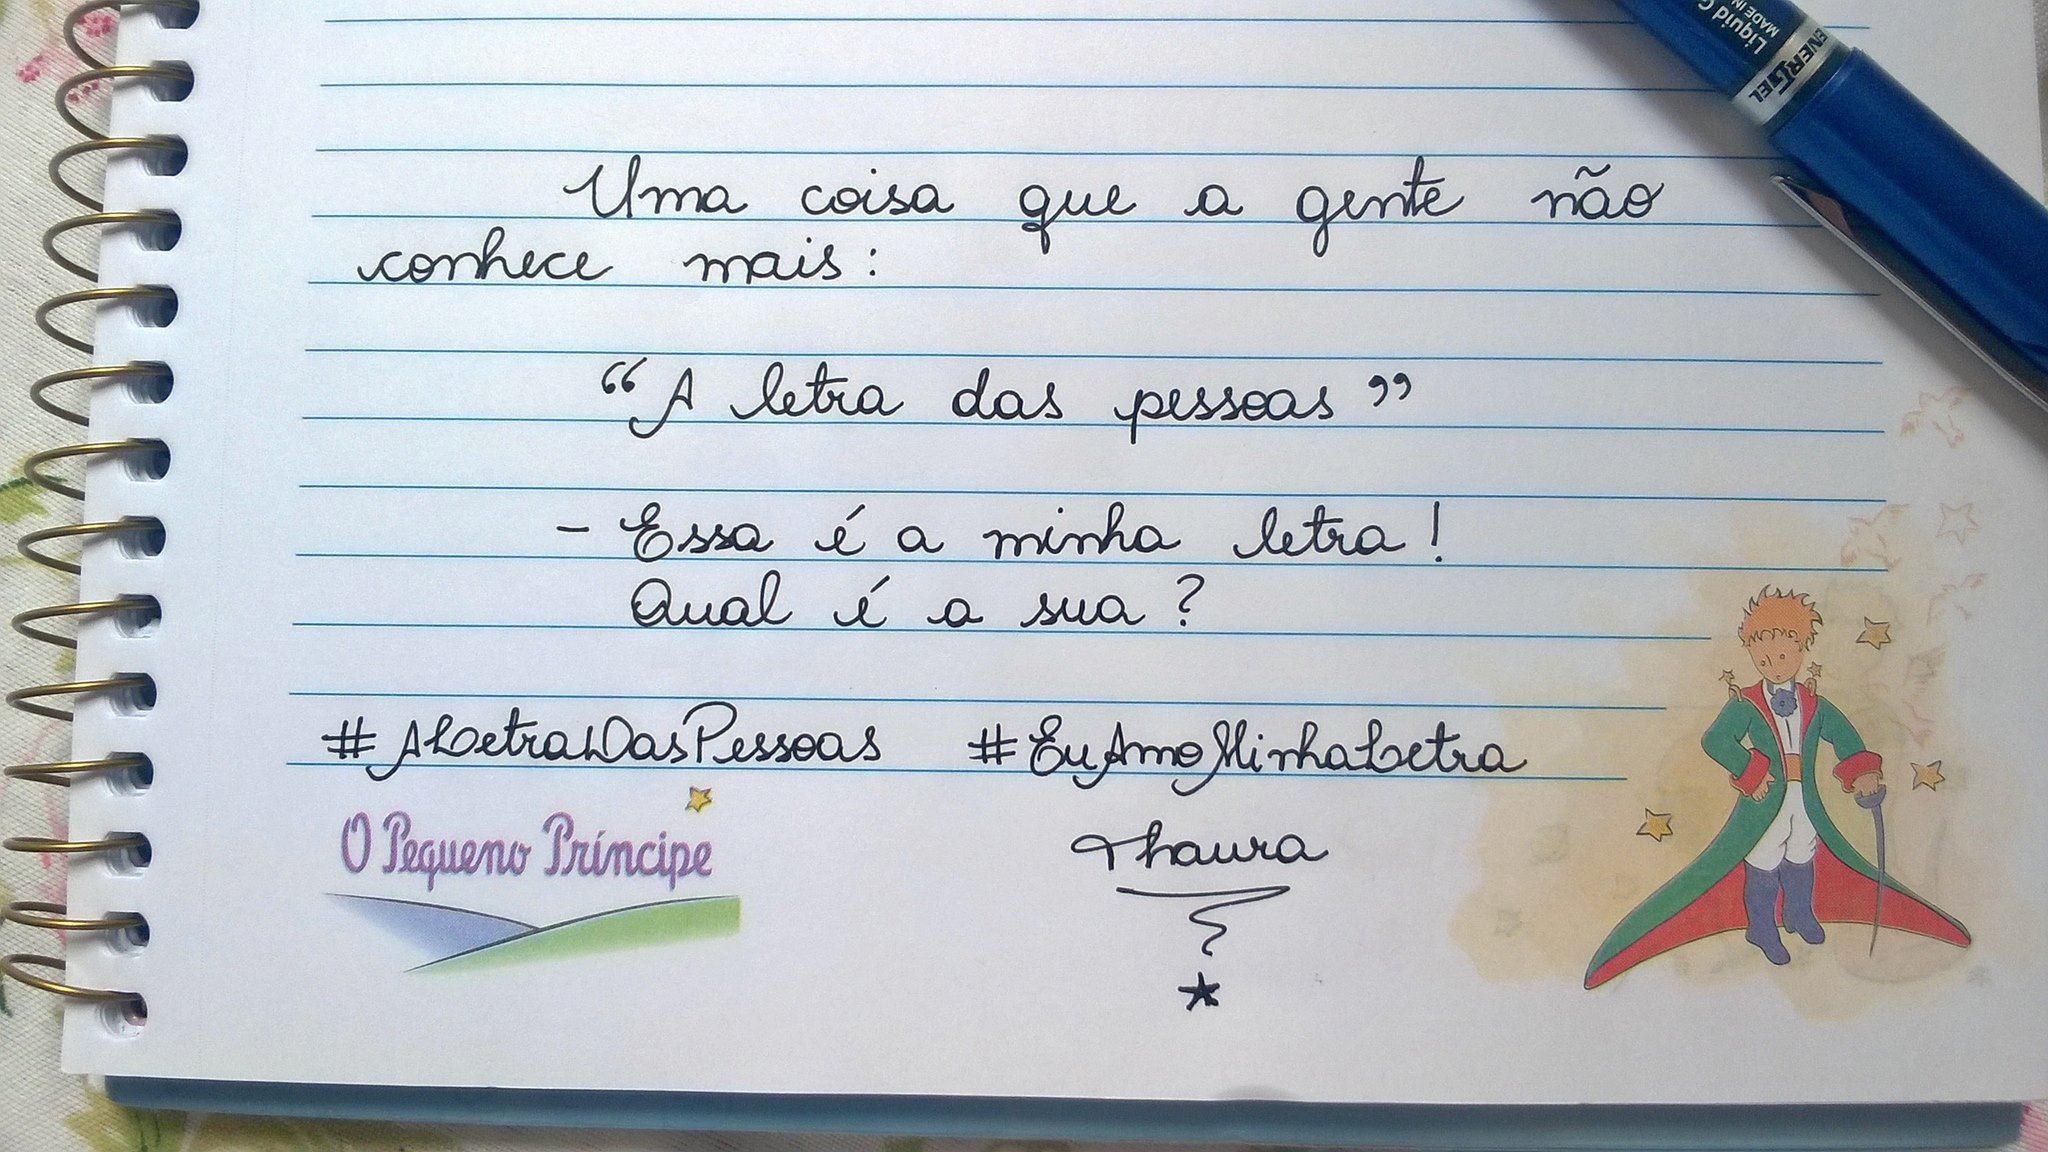 Liquid G
MADE IN
ENERGEL
Uma coisa que a gente não
conhece mais:
“A letra das pessoas”
- Essa é a minha letra!
Qual é a sua?
#ALetraDasPessoas #EuAmoMinhaLetra
O Pequeno Príncipe
Thaura